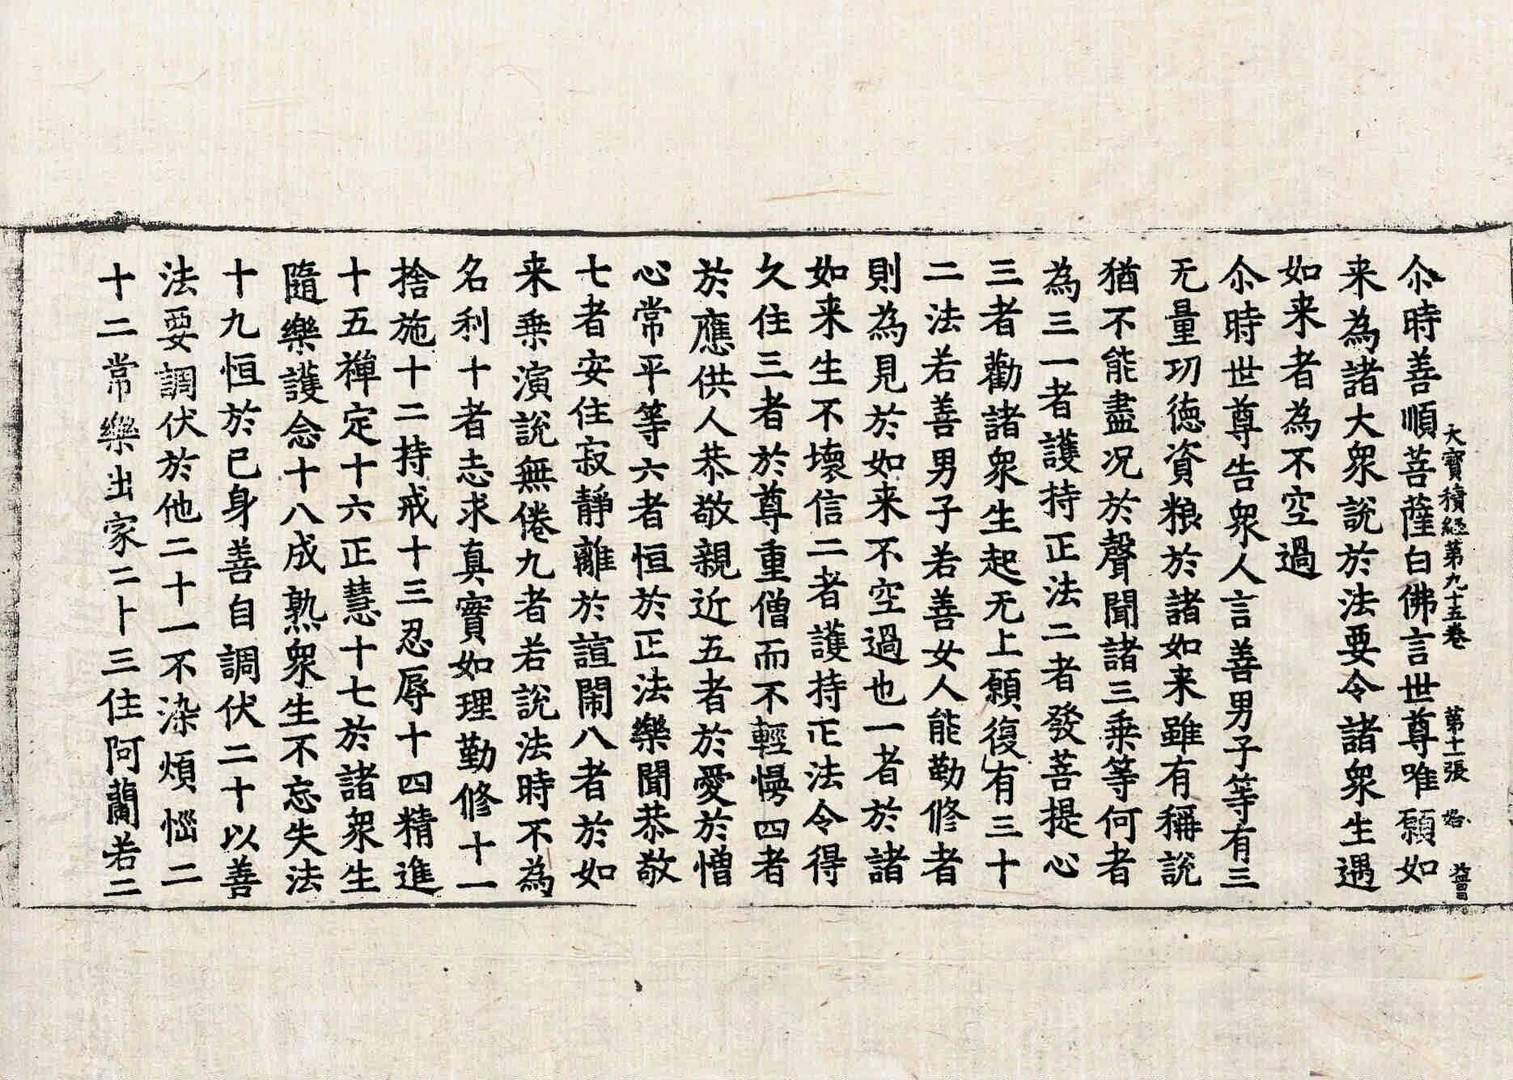 大寶積經第九十五卷 第十一張 始
尒時善順菩薩白佛言世尊唯願如
来為諸大衆說於法要令諸衆生遇
如来者為不空過
尒時世尊告衆人言善男子等有三
无量功徳資粮於諸如来雖有稱說
猶不能盡况於聲聞諸三乗等何者
為三一者護持正法二者發菩提心
三者勸諸衆生起无上願復有三十
二法若善男子若善女人能勤修者
則為見於如来不空過也一者於諸
如来生不壞信二者護持正法令得
久住三者於尊重僧而不輕慢四者
於應供人恭敬親近五者於愛於憎
心常平等六者恒於正法樂聞恭敬
七者安住寂靜離於諠閙八者於如
来乗演說無倦九者若說法時不為
名利十者志求真實如理勤修十一
捨施十二持戒十三忍辱十四精進
十五禪定十六正慧十七於諸衆生
隨樂護念十八成熟衆生不忘失法
十九恒於己身善自調伏二十以善
法要調伏於他二十一不染煩惱二
十二常樂出家二十三住阿蘭若二